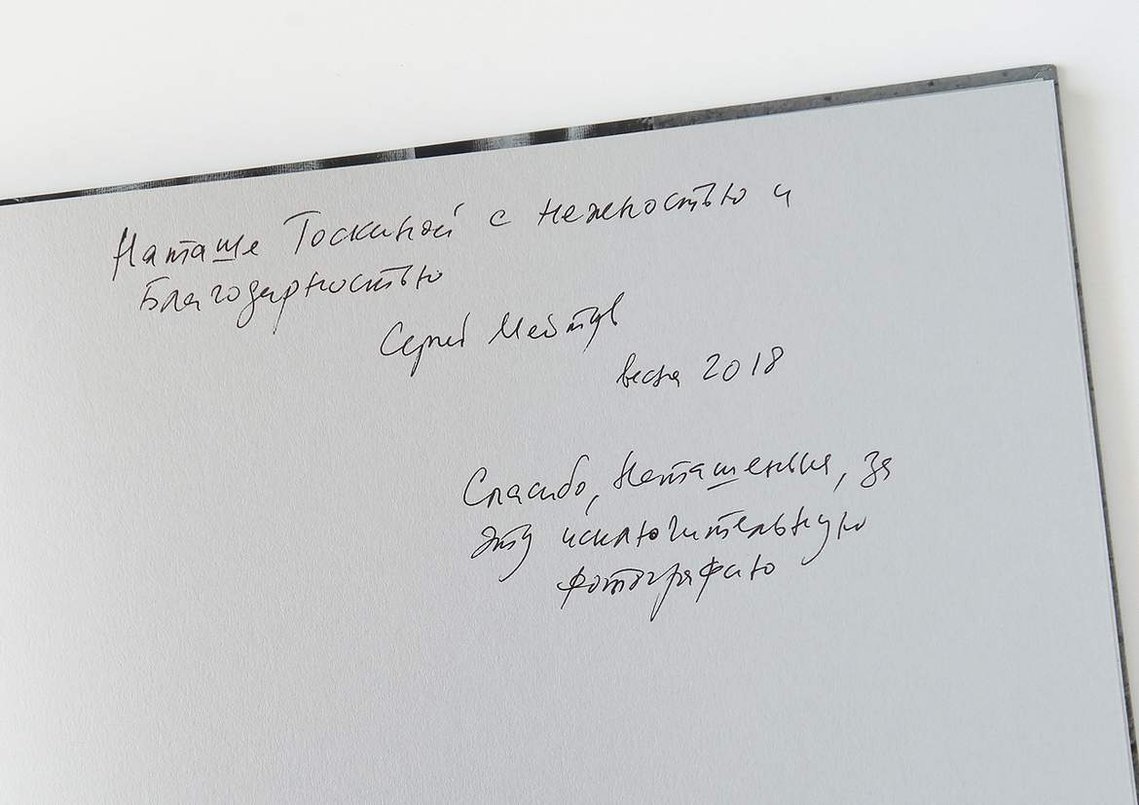 Наташе Тоскиной с нежностью и
благодарностью
Сергей
весна 2018
Спасибо, Наташенька, за
эту исключительную
фотографию